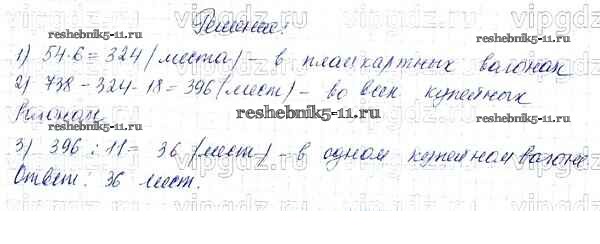 Решение:
1) 54·6 = 324 (места) – в плацкартных вагонах
2) 738 – 324 - 18 = 396 (мест) – во всех купейных
вагонах
3) 396 : 11 = 36 (мест) – в одном купейном вагоне
Ответ: 36 мест.
vipgdz
vipgdz.com
reshebnik5-11.ru
reshebnik5-11.ru
reshebnik5-11.ru